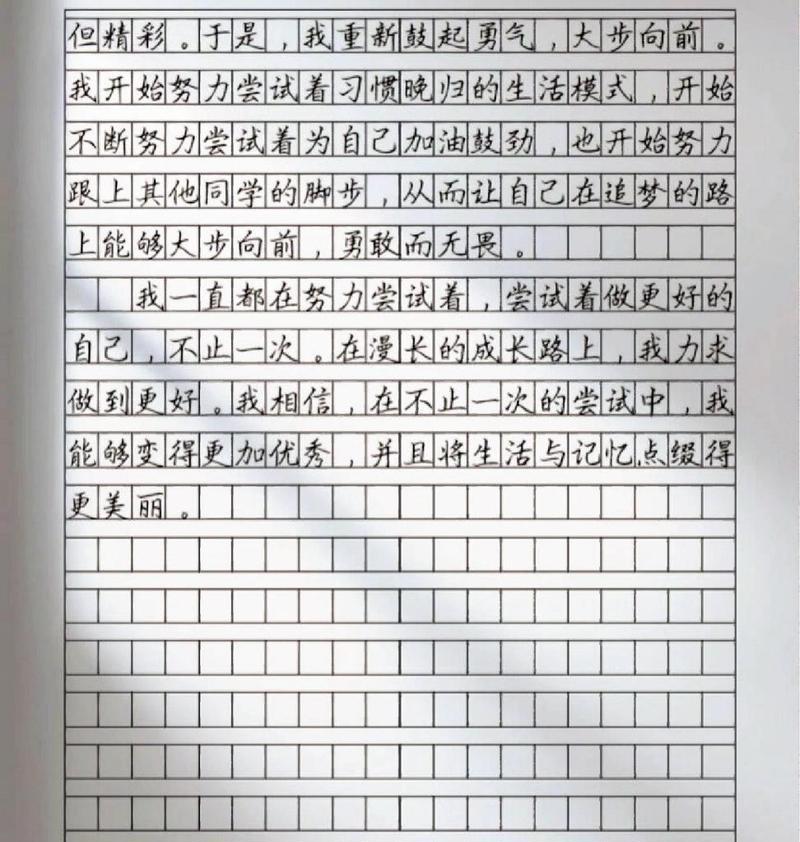 但精彩。于是，我重新鼓起勇气，大步向前。
我开始努力尝试着习惯晚归的生活模式，开始
不断努力尝试着为自己加油鼓劲，也开始努力
跟上其他同学的脚步，从而让自己在追梦的路
上能够大步向前，勇敢而无畏。
我一直都在努力尝试着，尝试着做更好的
自己，不止一次。在漫长的成长路上，我力求
做到更好。我相信，在不止一次的尝试中，我
能够变得更加优秀，并且将生活与记忆点缀得
更美丽。